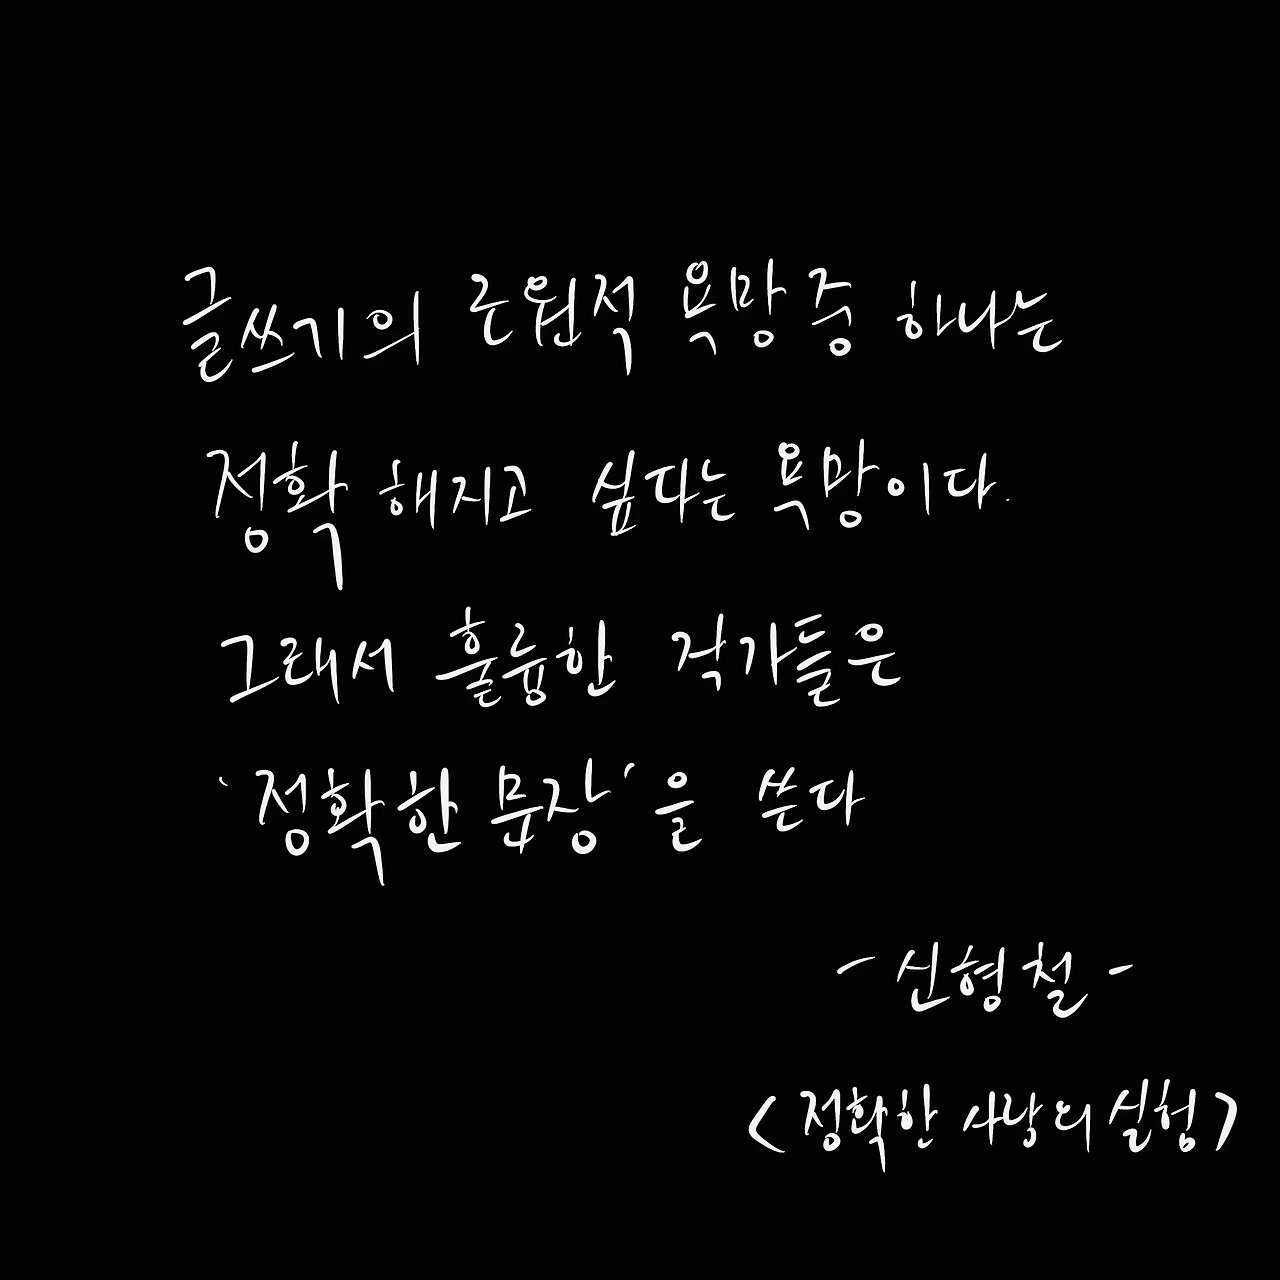 글쓰기의 근원적 욕망 중 하나는
정확해지고 싶다는 욕망이다.
그래서 훌륭한 작가들은
'정확한 문장'을 쓴다
- 신형철 -
<정확한 사랑의 실험>